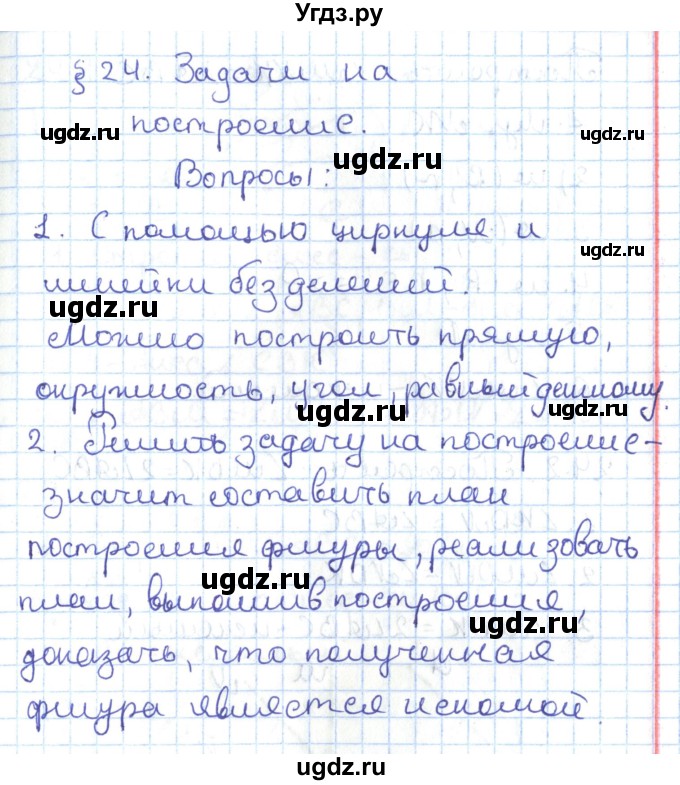 Угдз.ру
§ 24. Задачи на
ugdz.ru
ugdz.ru
построение.
ugdz.ru
Вопросы:
1. С помощью циркуля и
ugdz.ru
линейки без делений.
ugdz.ru
Можно построить прямую,
окружность, угол, равный данному.
ugdz.ru
2. Решить задачу на построение -
значит составить план
построения фигуры, реализовать
ugdz.ru
план, выполнив построения,
ugdz.ru
доказать, что полученная
фигура является искомой.
ugdz.ru